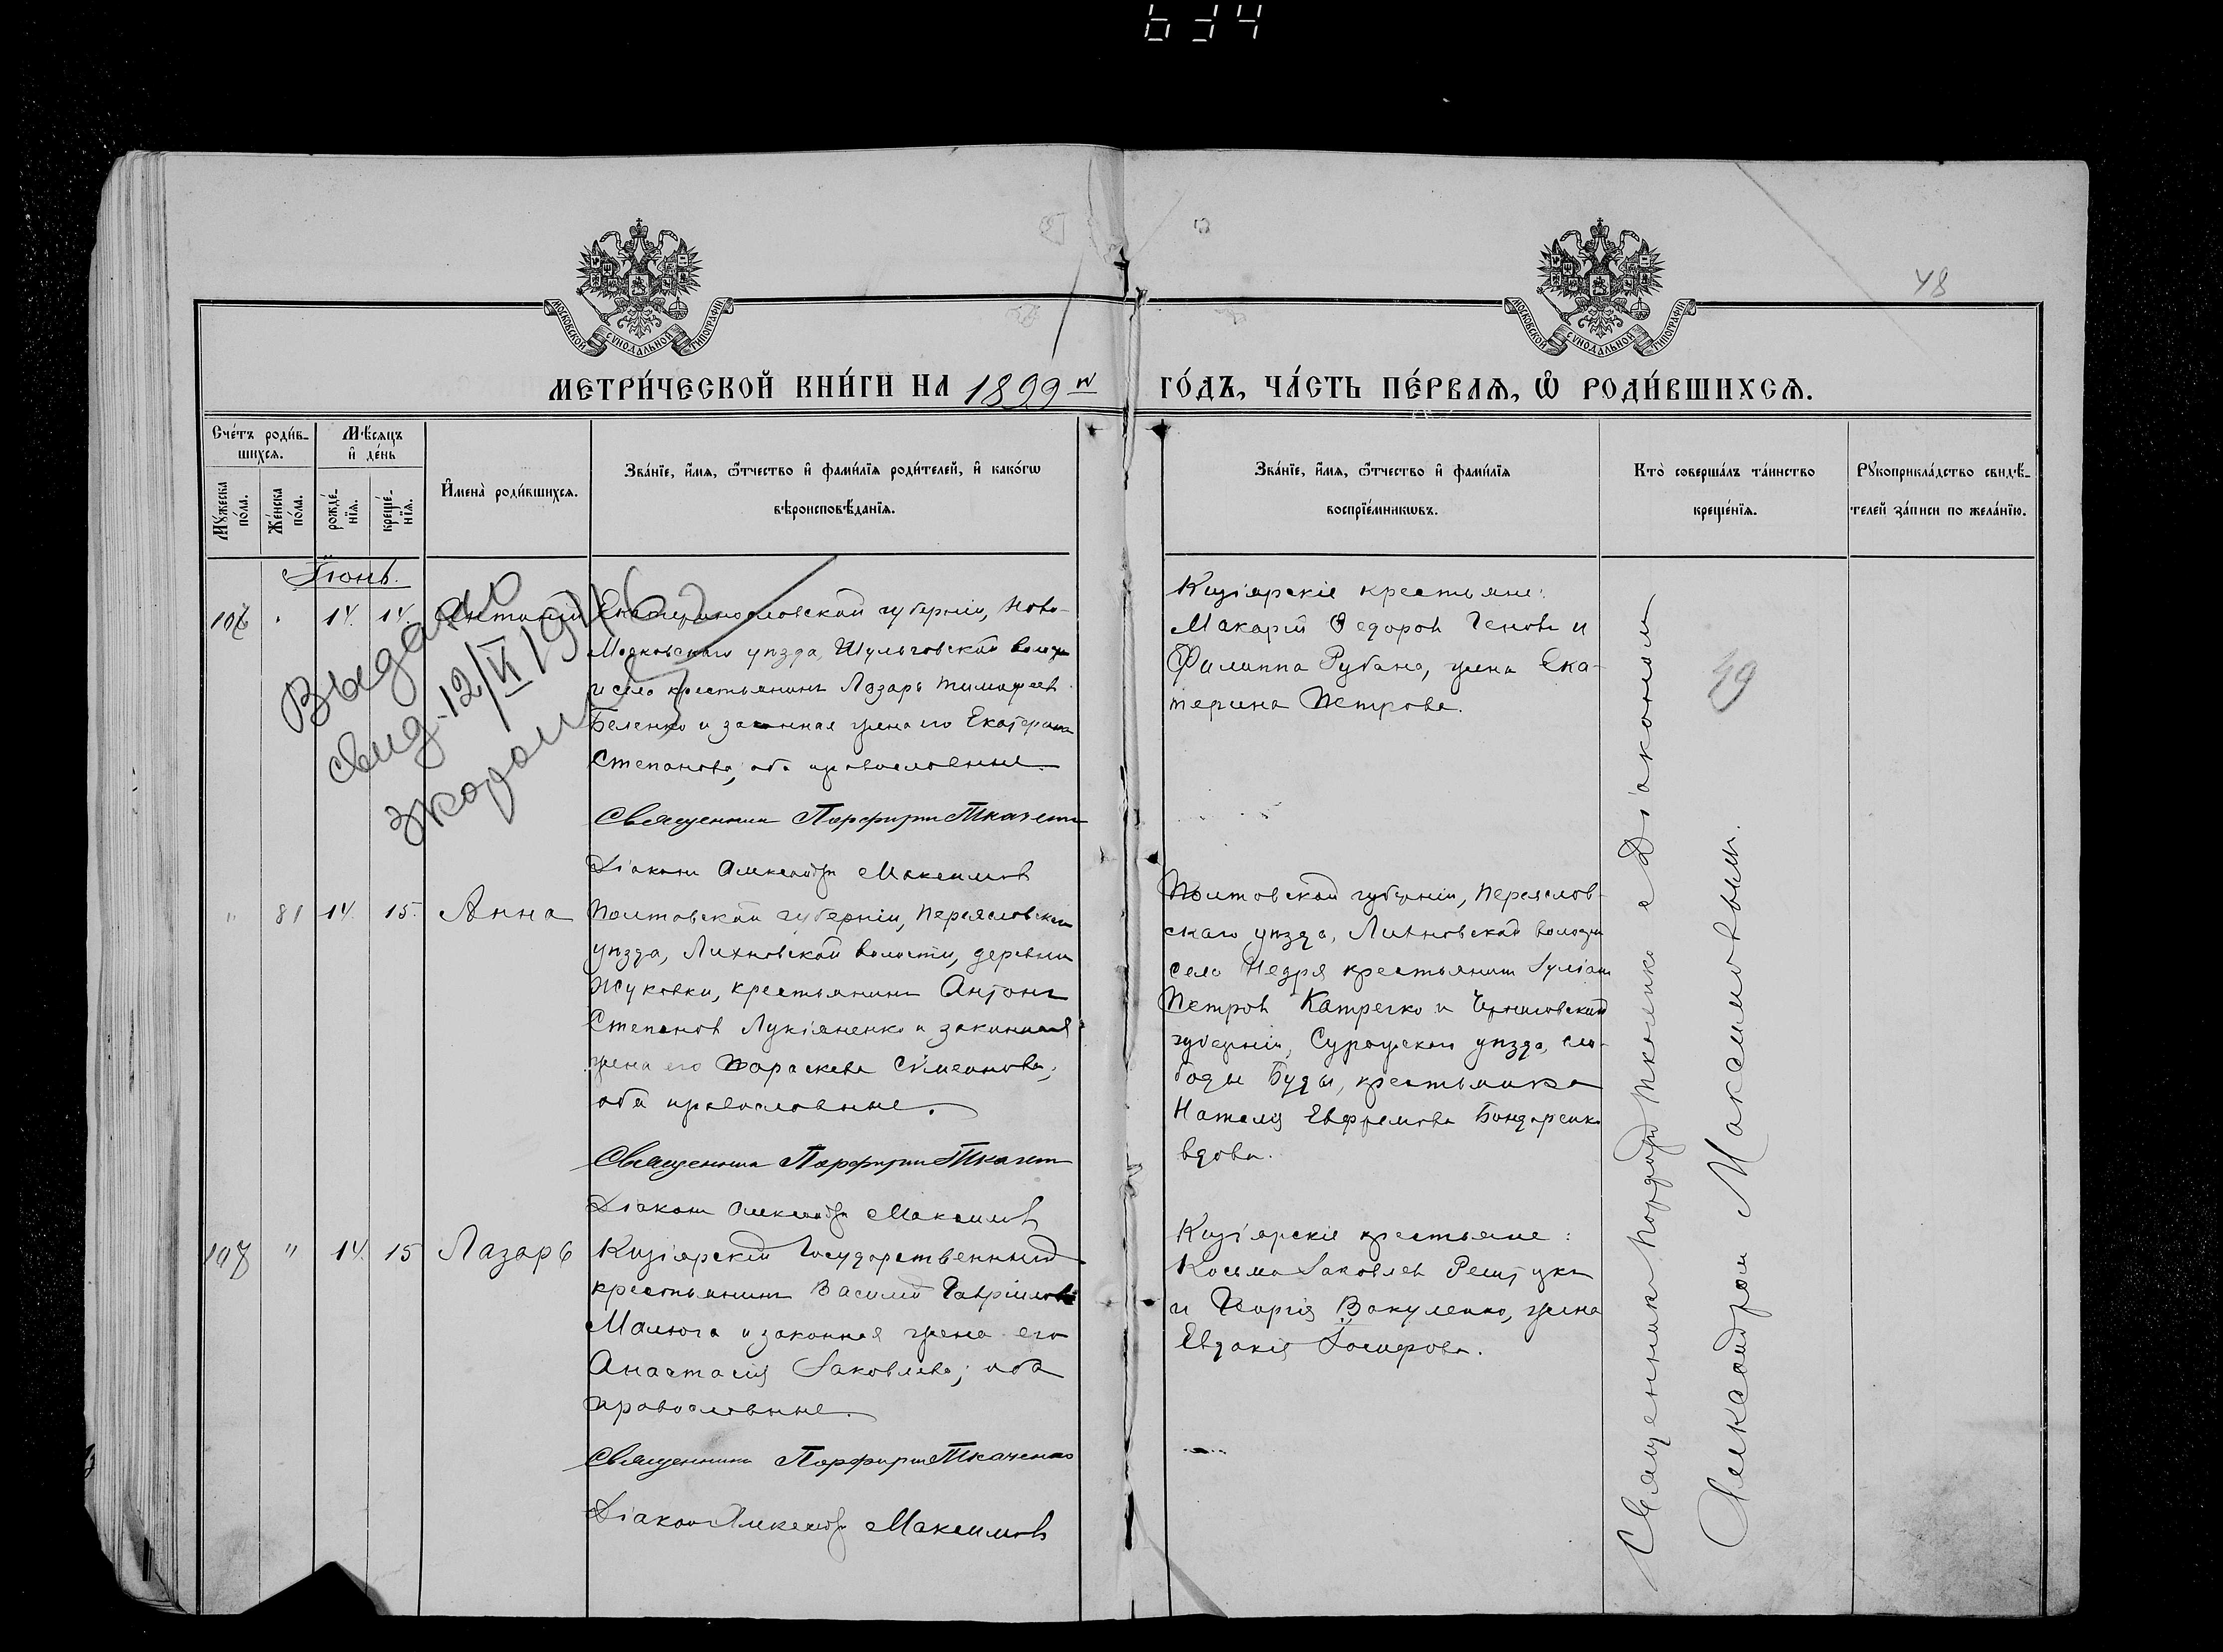 634
48
МОСКОВСКОЙ СѴНОДАЛЬНОЙ ТИПОГРАФІИ
МОСКОВСКОЙ СѴНОДАЛЬНОЙ ТИПОГРАФІИ
МЕТРИ́ЧЕСКОЙ КНИ́ГИ НА 1899й ГО́ДЪ, ЧА́СТЬ ПЕ́РВАѦ, Ѿ РОДИ́ВШИХСѦ.
Сче́тъ роди́в-
шихсѧ.
Мꙋ́жеска по́ла.
Же́нска по́ла.
Мѣ́сѧцъ
и҆ де́нь
рожде́-
нїѧ.
креще́-
нїѧ.
И҆мена̀ роди́вшихсѧ.
Зва́нїе, и҆́мѧ, ѻ҆́тчество и҆ фами́лїѧ роди́телей, и҆ како́гѡ
вѣроисповѣ́данїѧ.
Зва́нїе, и҆́мѧ, ѻ҆́тчество и҆ фами́лїѧ
воспрїе́мникѡвъ.
Кто̀ соверша́лъ та́инство
креще́нїѧ.
Рꙋкоприкла́дство свидѣ́-
телей за́писи по жела́нїю.
Іюнь.
106 " 14. 14. Антоній
Екатеринославской губерніи, Ново-
Московскаго уѣзда, Шульговской волости
и села крестьянинъ Лазарь Тимофеев
Беленко и законная жена его Екатерина
Степанова; оба православные.
Священник Порфирий Ткаченко
Діакон Александр Максимов
Выдано
свид. 12/VI 19
Кизіярскіе крестьяне:
Макарій Федоров Генов и
Филиппа Рубана, жена Ека-
терина Петрова.
49
" 81 14. 15. Анна
Полтавской губерніи, Переяславскаго
уѣзда, Лихновской волости, деревни
Жуковки, крестьянин Антонъ
Степанов Лукіяненко и законная
жена его Параскева Симеонова;
оба православные.
Священник Порфирий Ткаченко
Діакон Александр Максимов
Полтавской губерніи, Переяслав-
скаго уѣзда, Лихновской волости
село Недря крестьянин Іуліан
Петров Катречко и Черниговской
губерніи, Суражскаго уѣзда, сло-
боды Буды, крестьянка
Наталія Евфремова Бондаренко
вдова.
107 " 14. 15 Лазарь
Кизіярскій Государственный
крестьянин Василій Гавріилов
Малюга и законная жена его
Анастасія Іаковлева; оба
православные.
Священник Порфирий Ткаченко
Діакон Александр Максимов
Кизіярскіе крестьяне:
Косьма Іаковлев
и Георгія Вакуленко, жена
Евдокія Іосифова.
Священник Порфирій Ткаченко с Діаконом
Александром Максимовым.